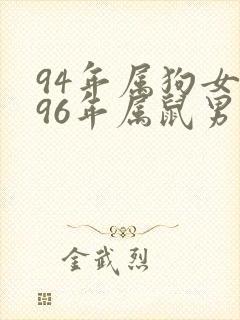 94年属狗女
96年属鼠男
金武烈